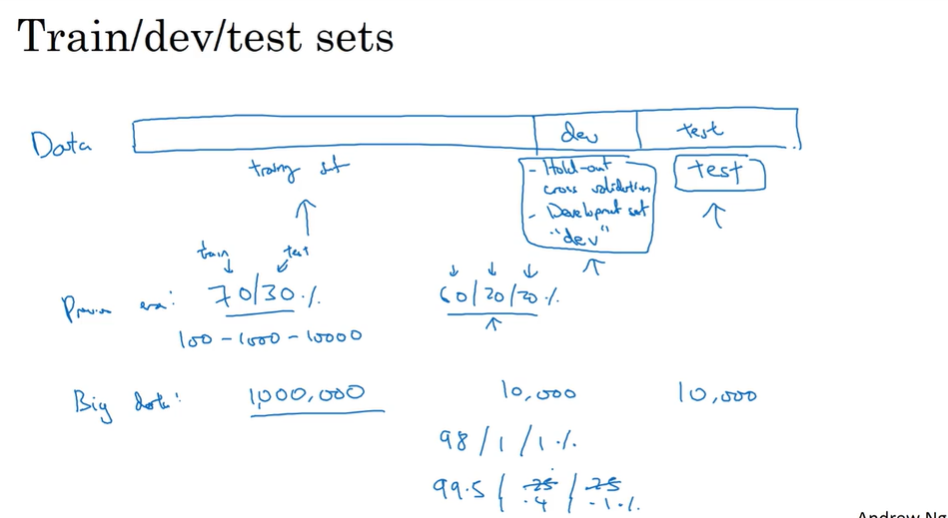 Train/dev/test sets
Data
dev
test
training set
- Hold-out
cross validation
- Development set
"dev"
test
train
test
Previous era:
70/30%
60/20/20%
100-1000-10000
Big data:
1,000,000
10,000
10,000
98/1/1%
99.5/
.25
/
.25
.4
.1%
Andrew Ng